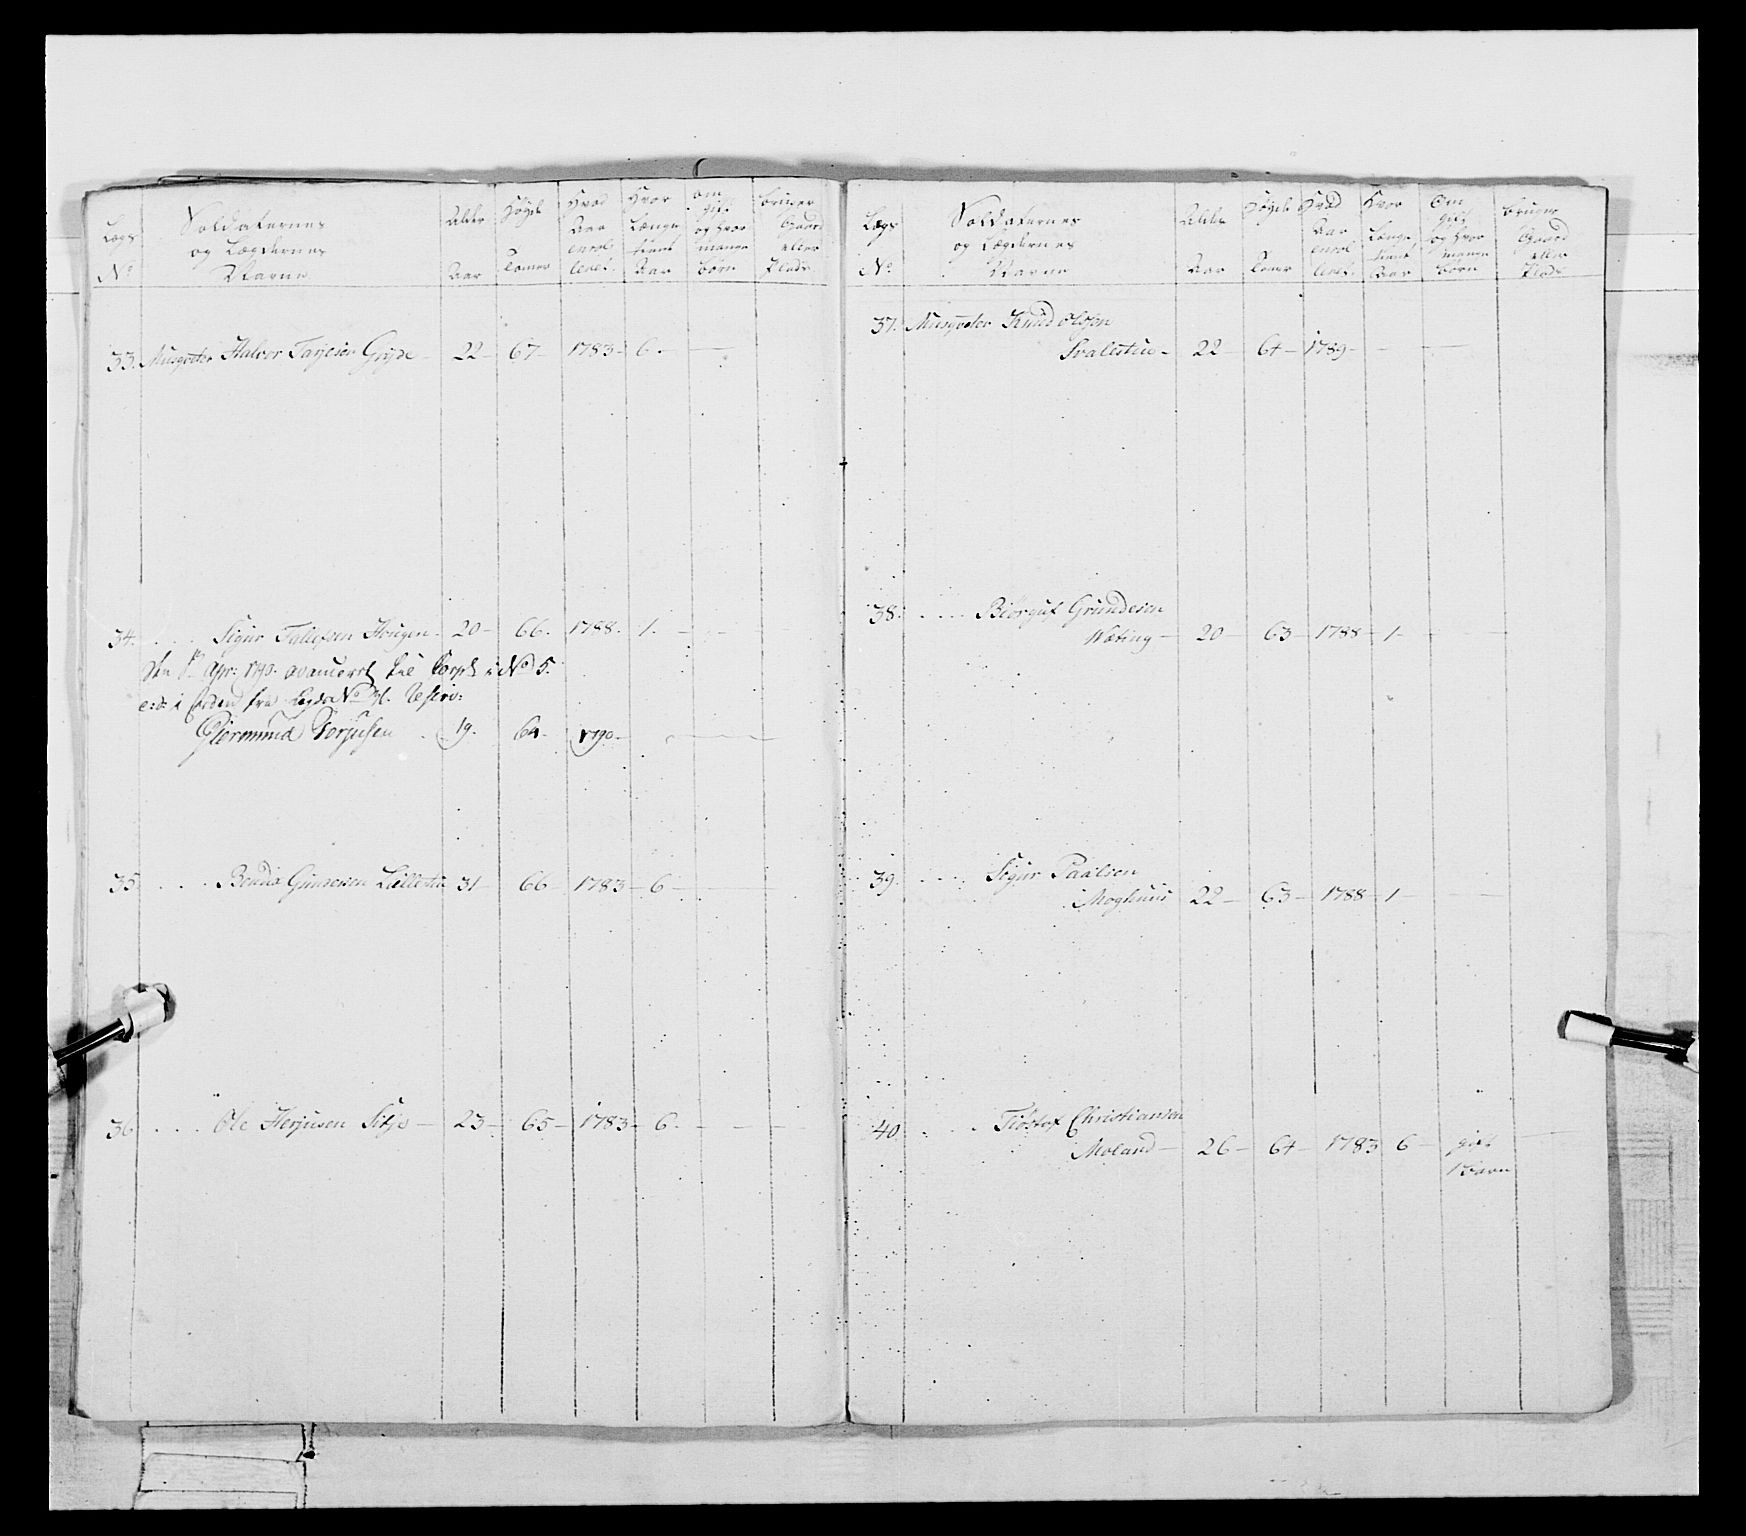 Lægs No
Soldaternes og Lægdernes Navne
Alder Aar
Høyde Tomer
Hvad Aar enrolleret
Hvor Længe tient Aar
Om gift og hvor mange børn
bruger Gaard eller Plads
33. Musqveter Halvor Tarjesen 22 – 67 – 1783 – 6. –
34. . . . Sigur Tallefsen Hougen – 20 – 66. 1788. 1. –
Den Apr: 1790. avanceret til Corpl: i No 5.
e:d: i steden fra Legds No
Giermund Torjusen . 19. 64. 1790.
35 . . . . Bendix 31 – 66 – 1783 – 6 –
36 . . . . Ole Herjusen 23 – 65 – 1783 – 6. – – –
Lægs No
Soldaternes og Lægdernes Navne
Alder Aar
Høyde Tomer
Hvad Aar enrolleret
Hvor Længe tient Aar
Om gift og hvor mange børn
bruger Gaard eller Plads
37. Musqveter Knud Olsen
Svalestue – 22 – 64 – 1789 – – –
38. . . . . Biørguf Grundesen
20 – 63 – 1788 – 1 – – –
39. . . . . Sigur Paalsen
22 – 63 – 1788 – 1 – – –
40 . . . Tiøstof Christiansen
Moland – 26 – 64 – 1783 6 – gift –
1 Barn